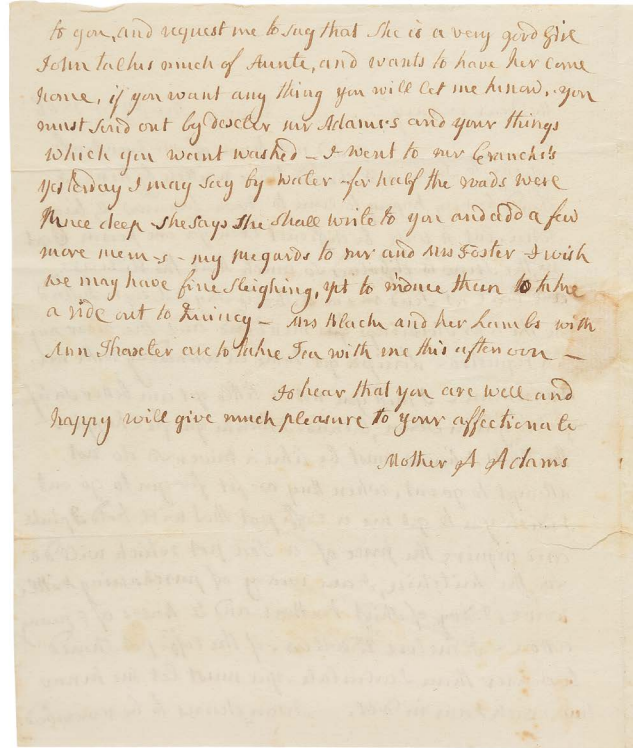 to you, and request me to say that she is a very good Girl
John talks much of Aunte, and wants to have her come
home, if you want any thing you will let me know. you
must send out by dexter mr Adams's and your things
which you want washed - I went to mr Cranchs's
yesterday I may say by water - for half the roads were
knee deep - she says she shall write to you and add a few
more mem-s - my regards to mr and Mrs Foster - I wish
we may have fine sleighing, to induce them to take
a ride out to Quincy - Mrs Black and her Lambs with
Ann Thaxter are to take Tea with me this afternoon -
To hear that you are well and
happy will give much pleasure to your affectionate
Mother A Adams